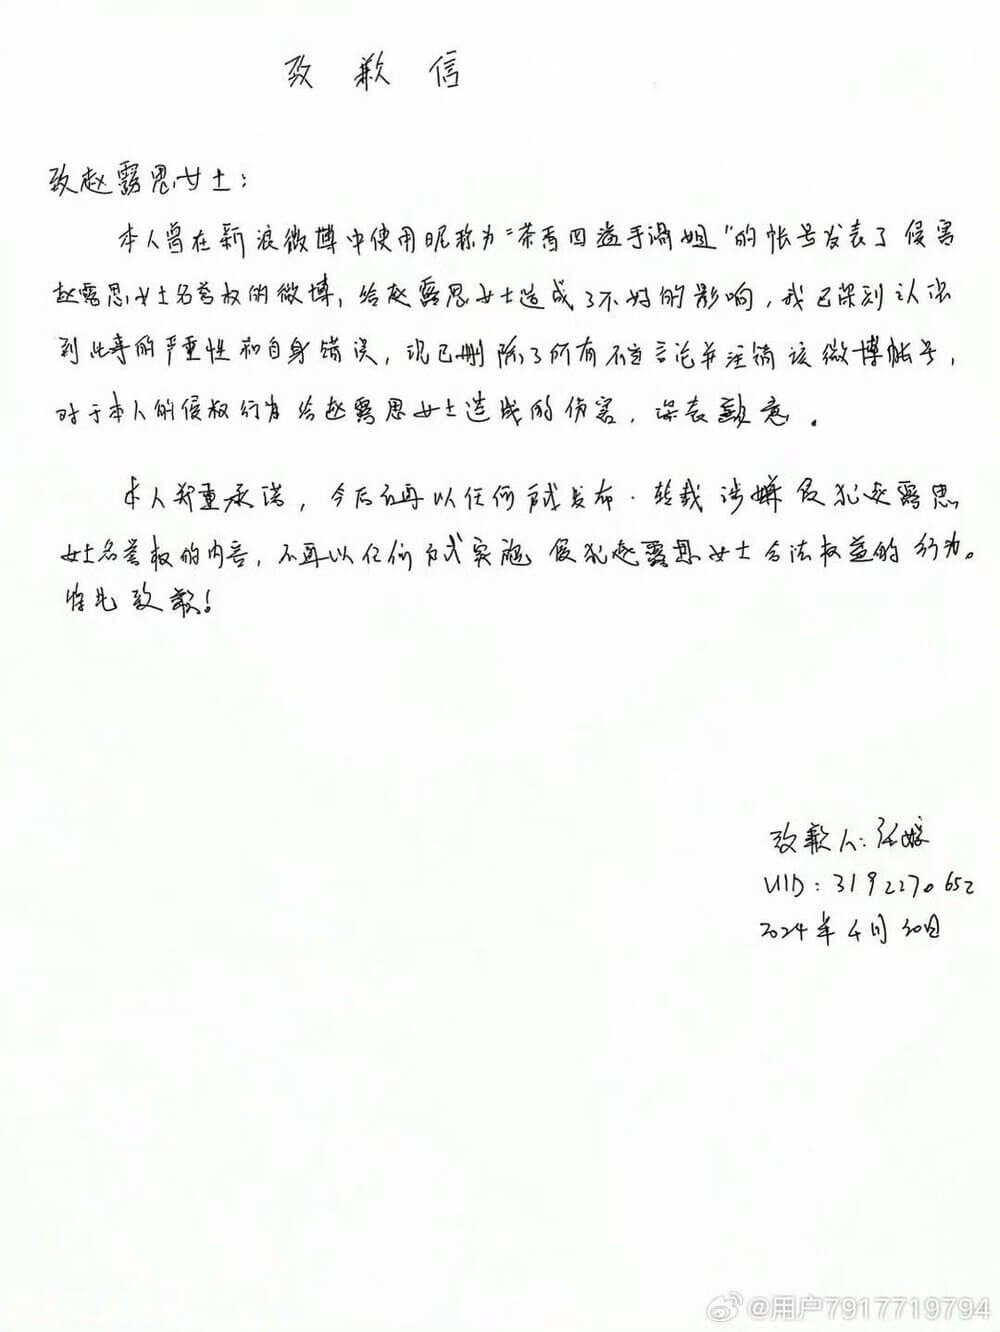 致歉信
致赵露思女士：
本人曾在新浪微博中使用昵称为“茶香四溢于滴姐”的帐号发表了侵害
赵露思女士名誉权的微博，给赵露思女士造成了不好的影响，我已深刻认识
到此事的严重性和自身错误，现已删除了所有不当言论并注销该微博帐号，
对于本人的侵权行为给赵露思女士造成的伤害，深表歉意。
本人郑重承诺，今后不再以任何方式发布、转载涉嫌侵犯赵露思
女士名誉权的内容，不再以任何方式实施侵犯赵露思女士合法权益的行为。
特此致歉！
致歉人：任
UID：3192270652
2024年4月30日
@用户7917719794